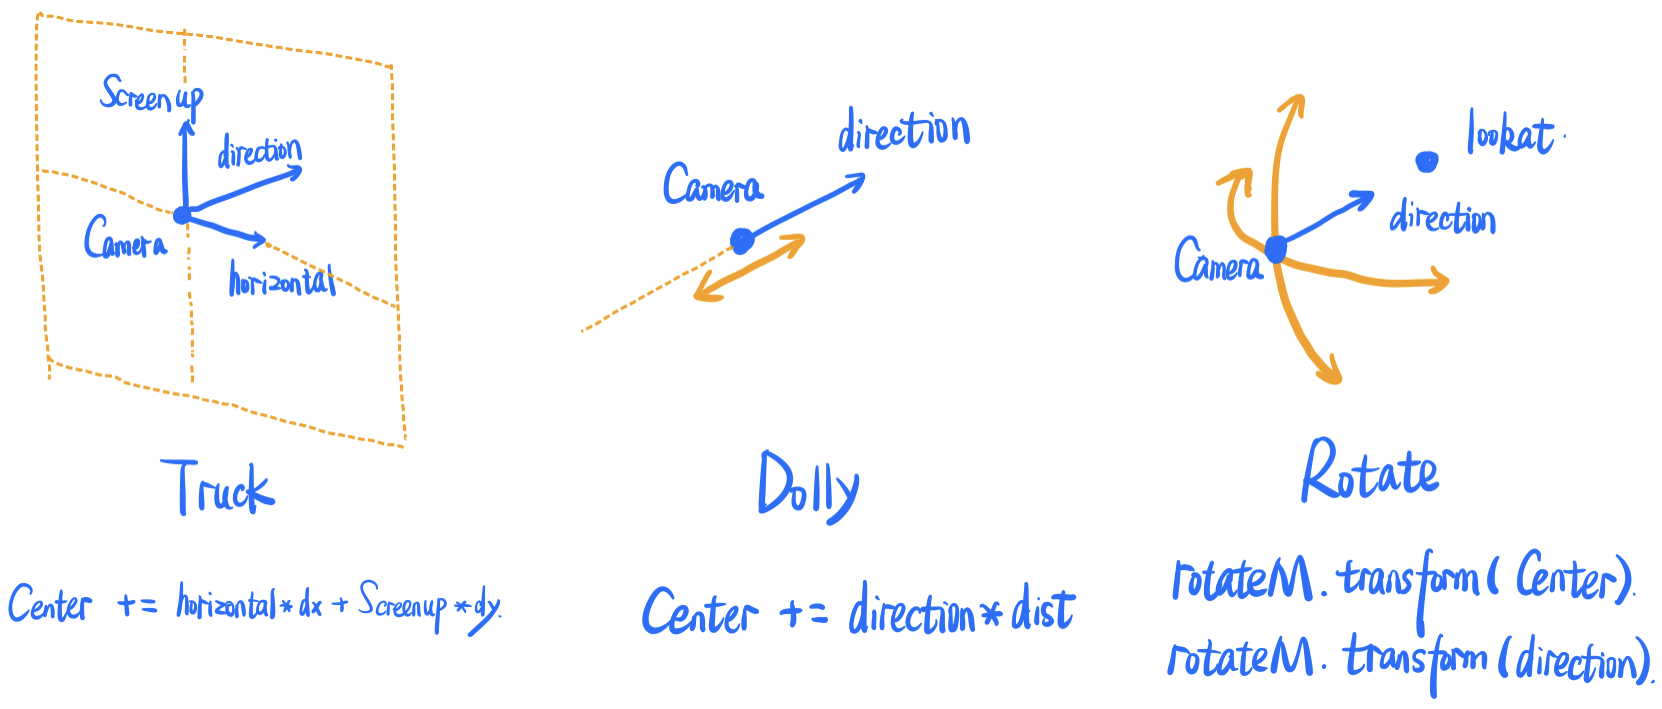 Screen up
direction
Camera
horizontal
Truck
Center += horizontal * dx + Screenup * dy.
direction
Camera
Dolly
Center += direction * dist
lookat.
direction
Camera
Rotate
rotateM. transform( Center).
rotateM. transform(direction).